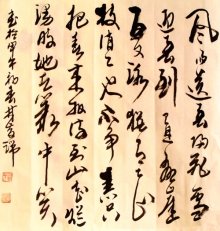 风雨送春归飞雪
迎春到已是悬崖
百丈冰犹有花
枝俏俏也不争春只
把春来报待到山花烂
漫时她在丛中笑
於甲午初春